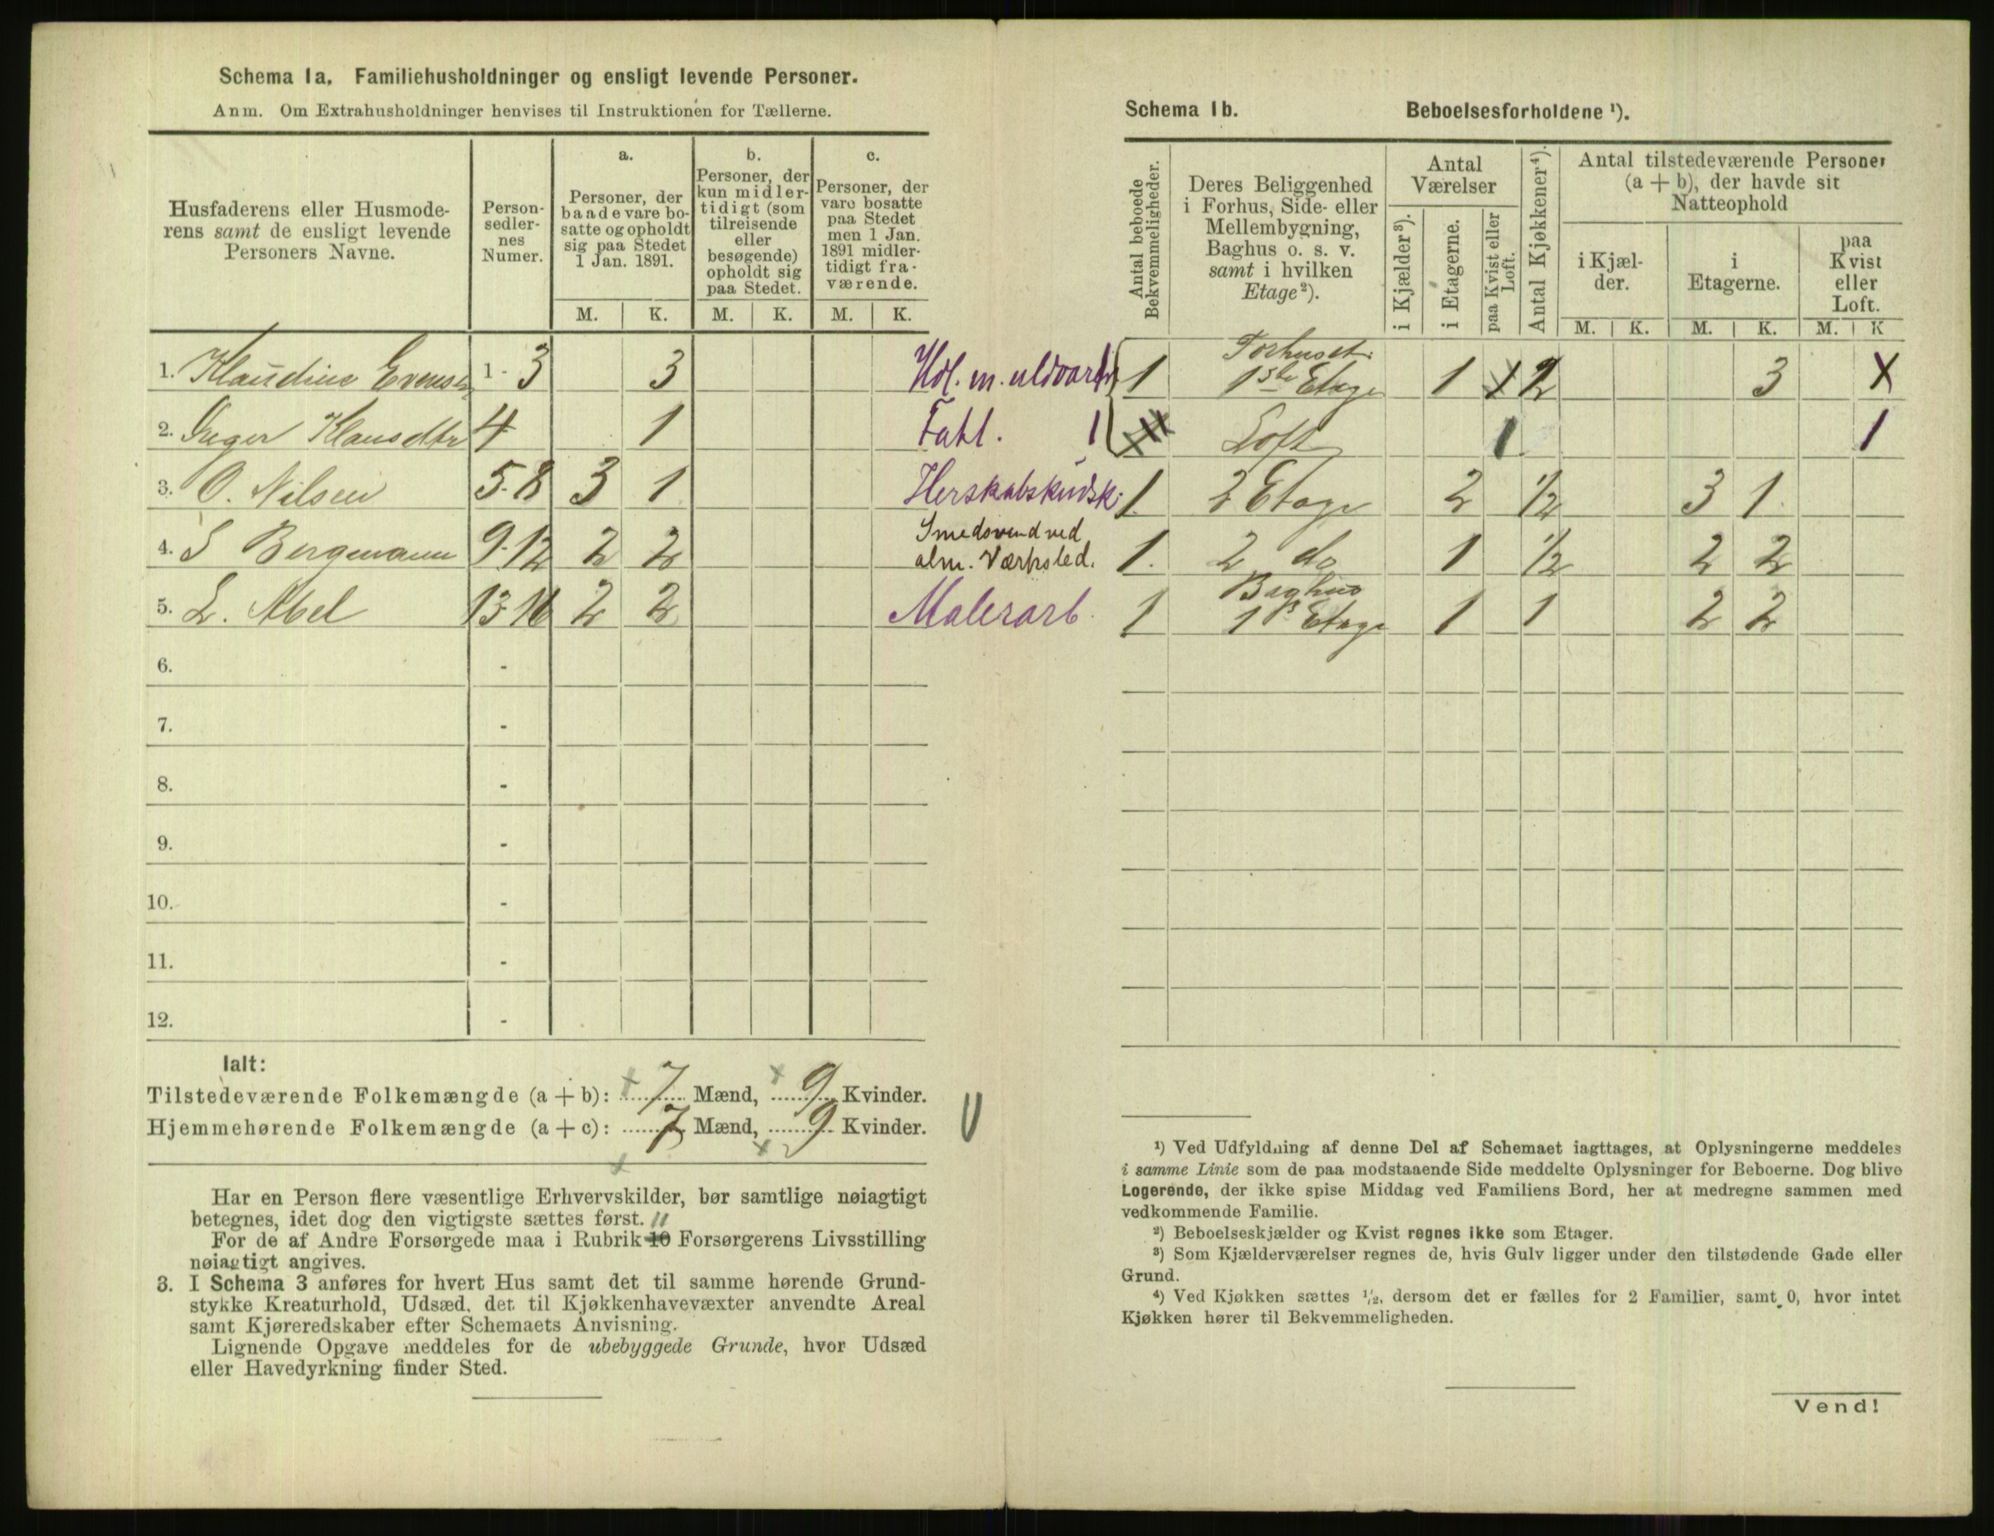 Schema Ia. Familiehusholdninger og ensligt levende Personer.
Anm. Om Extrahusholdninger henvises til Instruktionen for Tællerne.
Husfaderens eller Husmoderens samt de ensligt levende Personers Navne.
Personsedlernes Numer.
a. Personer, der baade vare bosatte og opholdt sig paa Stedet 1 Jan. 1891.
b. Personer, der kun midlertidigt (som tilreisende eller besøgende) opholdt sig paa Stedet.
c. Personer, der vare bosatte paa Stedet men 1 Jan. 1891 midlertidigt fraværende.
M. K. M. K. M. K.
1. Klaudine Evensen 1 - 3 3 Hdl. m. uldvarer
2. Inger Klausdtr 4 1 Fatt. 1
3. O. Nilsen 5-8 3 1 Herskabskudsk:
4. S Bergmann 9-12 2 2 Smedsvend ved alm. Værksted.
5. L. Abel 13-16 2 2 Malerarb.
6. -
7. -
8. -
9. -
10. -
11. -
12. -
Ialt:
Tilstedeværende Folkemængde (a + b): 7 Mænd, 9 Kvinder.
Hjemmehørende Folkemængde (a + c): 7 Mænd, 9 Kvinder.
Har en Person flere væsentlige Erhvervskilder, bør samtlige nøiagtigt
betegnes, idet dog den vigtigste sættes først. 11
For de af Andre Forsørgede maa i Rubrik 10 Forsørgerens Livsstilling
nøiagtigt angives.
3. I Schema 3 anføres for hvert Hus samt det til samme hørende Grund-
stykke Kreaturhold, Udsæd, det til Kjøkkenhavevæxter anvendte Areal
samt Kjøreredskaber efter Schemaets Anvisning.
Lignende Opgave meddeles for de ubebyggede Grunde, hvor Udsæd
eller Havedyrkning finder Sted.
Schema Ib. Beboelsesforholdene ¹).
Antal beboede Bekvemmeligheder.
Deres Beliggenhed i Forhus, Side- eller Mellembygning, Baghus o. s. v. samt i hvilken Etage²).
Antal Værelser
i Kjælder³).
i Etagerne.
paa Kvist eller Loft.
Antal Kjøkkener⁴).
Antal tilstedeværende Personer (a + b), der havde sit Natteophold
i Kjælder.
i Etagerne.
paa Kvist eller Loft.
M. K. M. K. M. K
1 Forhuset: 1ste Etage 1 x 2 3 x
Loft 1 1
1 2 Etage 2 1/2 3 1
1. 2 do 1 1/2 2 2
1 Baghus 1ste Etage 1 1 2 2
¹) Ved Udfyldning af denne Del af Schemaet iagttages, at Oplysningerne meddeles
i samme Linie som de paa modstaaende Side meddelte Oplysninger for Beboerne. Dog blive
Logerende, der ikke spise Middag ved Familiens Bord, her at medregne sammen med
vedkommende Familie.
²) Beboelseskjælder og Kvist regnes ikke som Etager.
³) Som Kjælderværelser regnes de, hvis Gulv ligger under den tilstødende Gade eller
Grund.
⁴) Ved Kjøkken sættes ½, dersom det er fælles for 2 Familier, samt 0, hvor intet
Kjøkken hører til Bekvemmeligheden.
Vend!